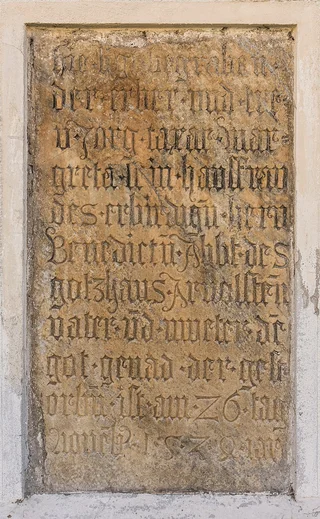 hie · ligt · begraben ·
der · erber · und · 
v · Jorg · taxar · mar=
greta · sein · hausfrau
des · erbirdigñ · hern
Benedictũ · Abbt · des
gotzhaus · Arnolsteñ
vater · uñd · mueter · dẽ
got · genad · der · gest
orbñ · ist · am · 26 · tag